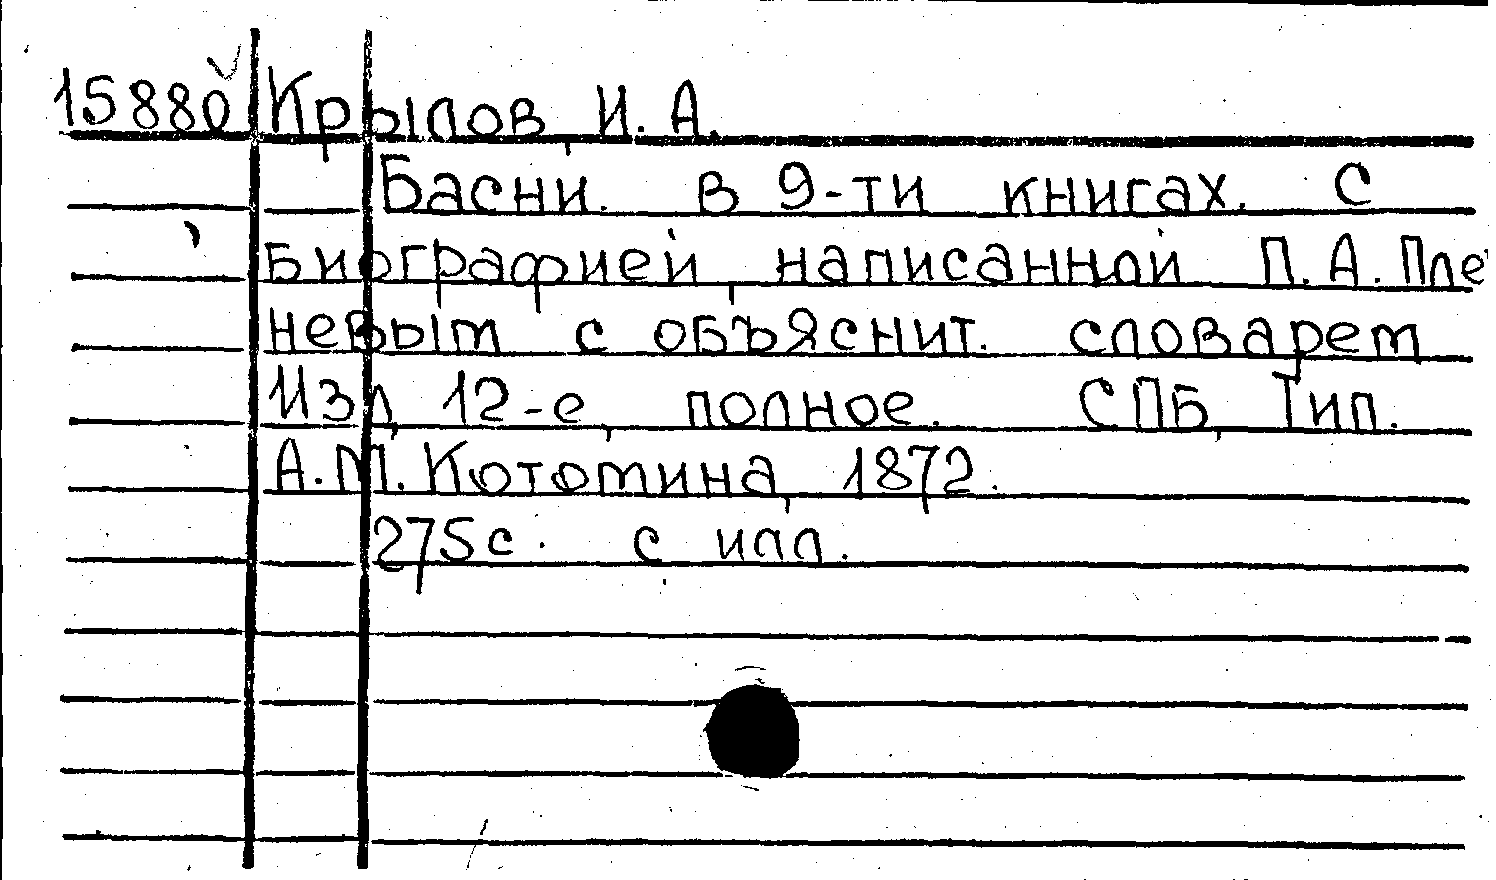 15880 Крылов, И. А.
Басни. в 9-ти книгах. С
биографией, написанной П. А. Пле
невым с объяснит. словарем
Изд, 12-е, полное. СПБ, Тип.
А. М. Котомина, 1872.
275 с. с илл.